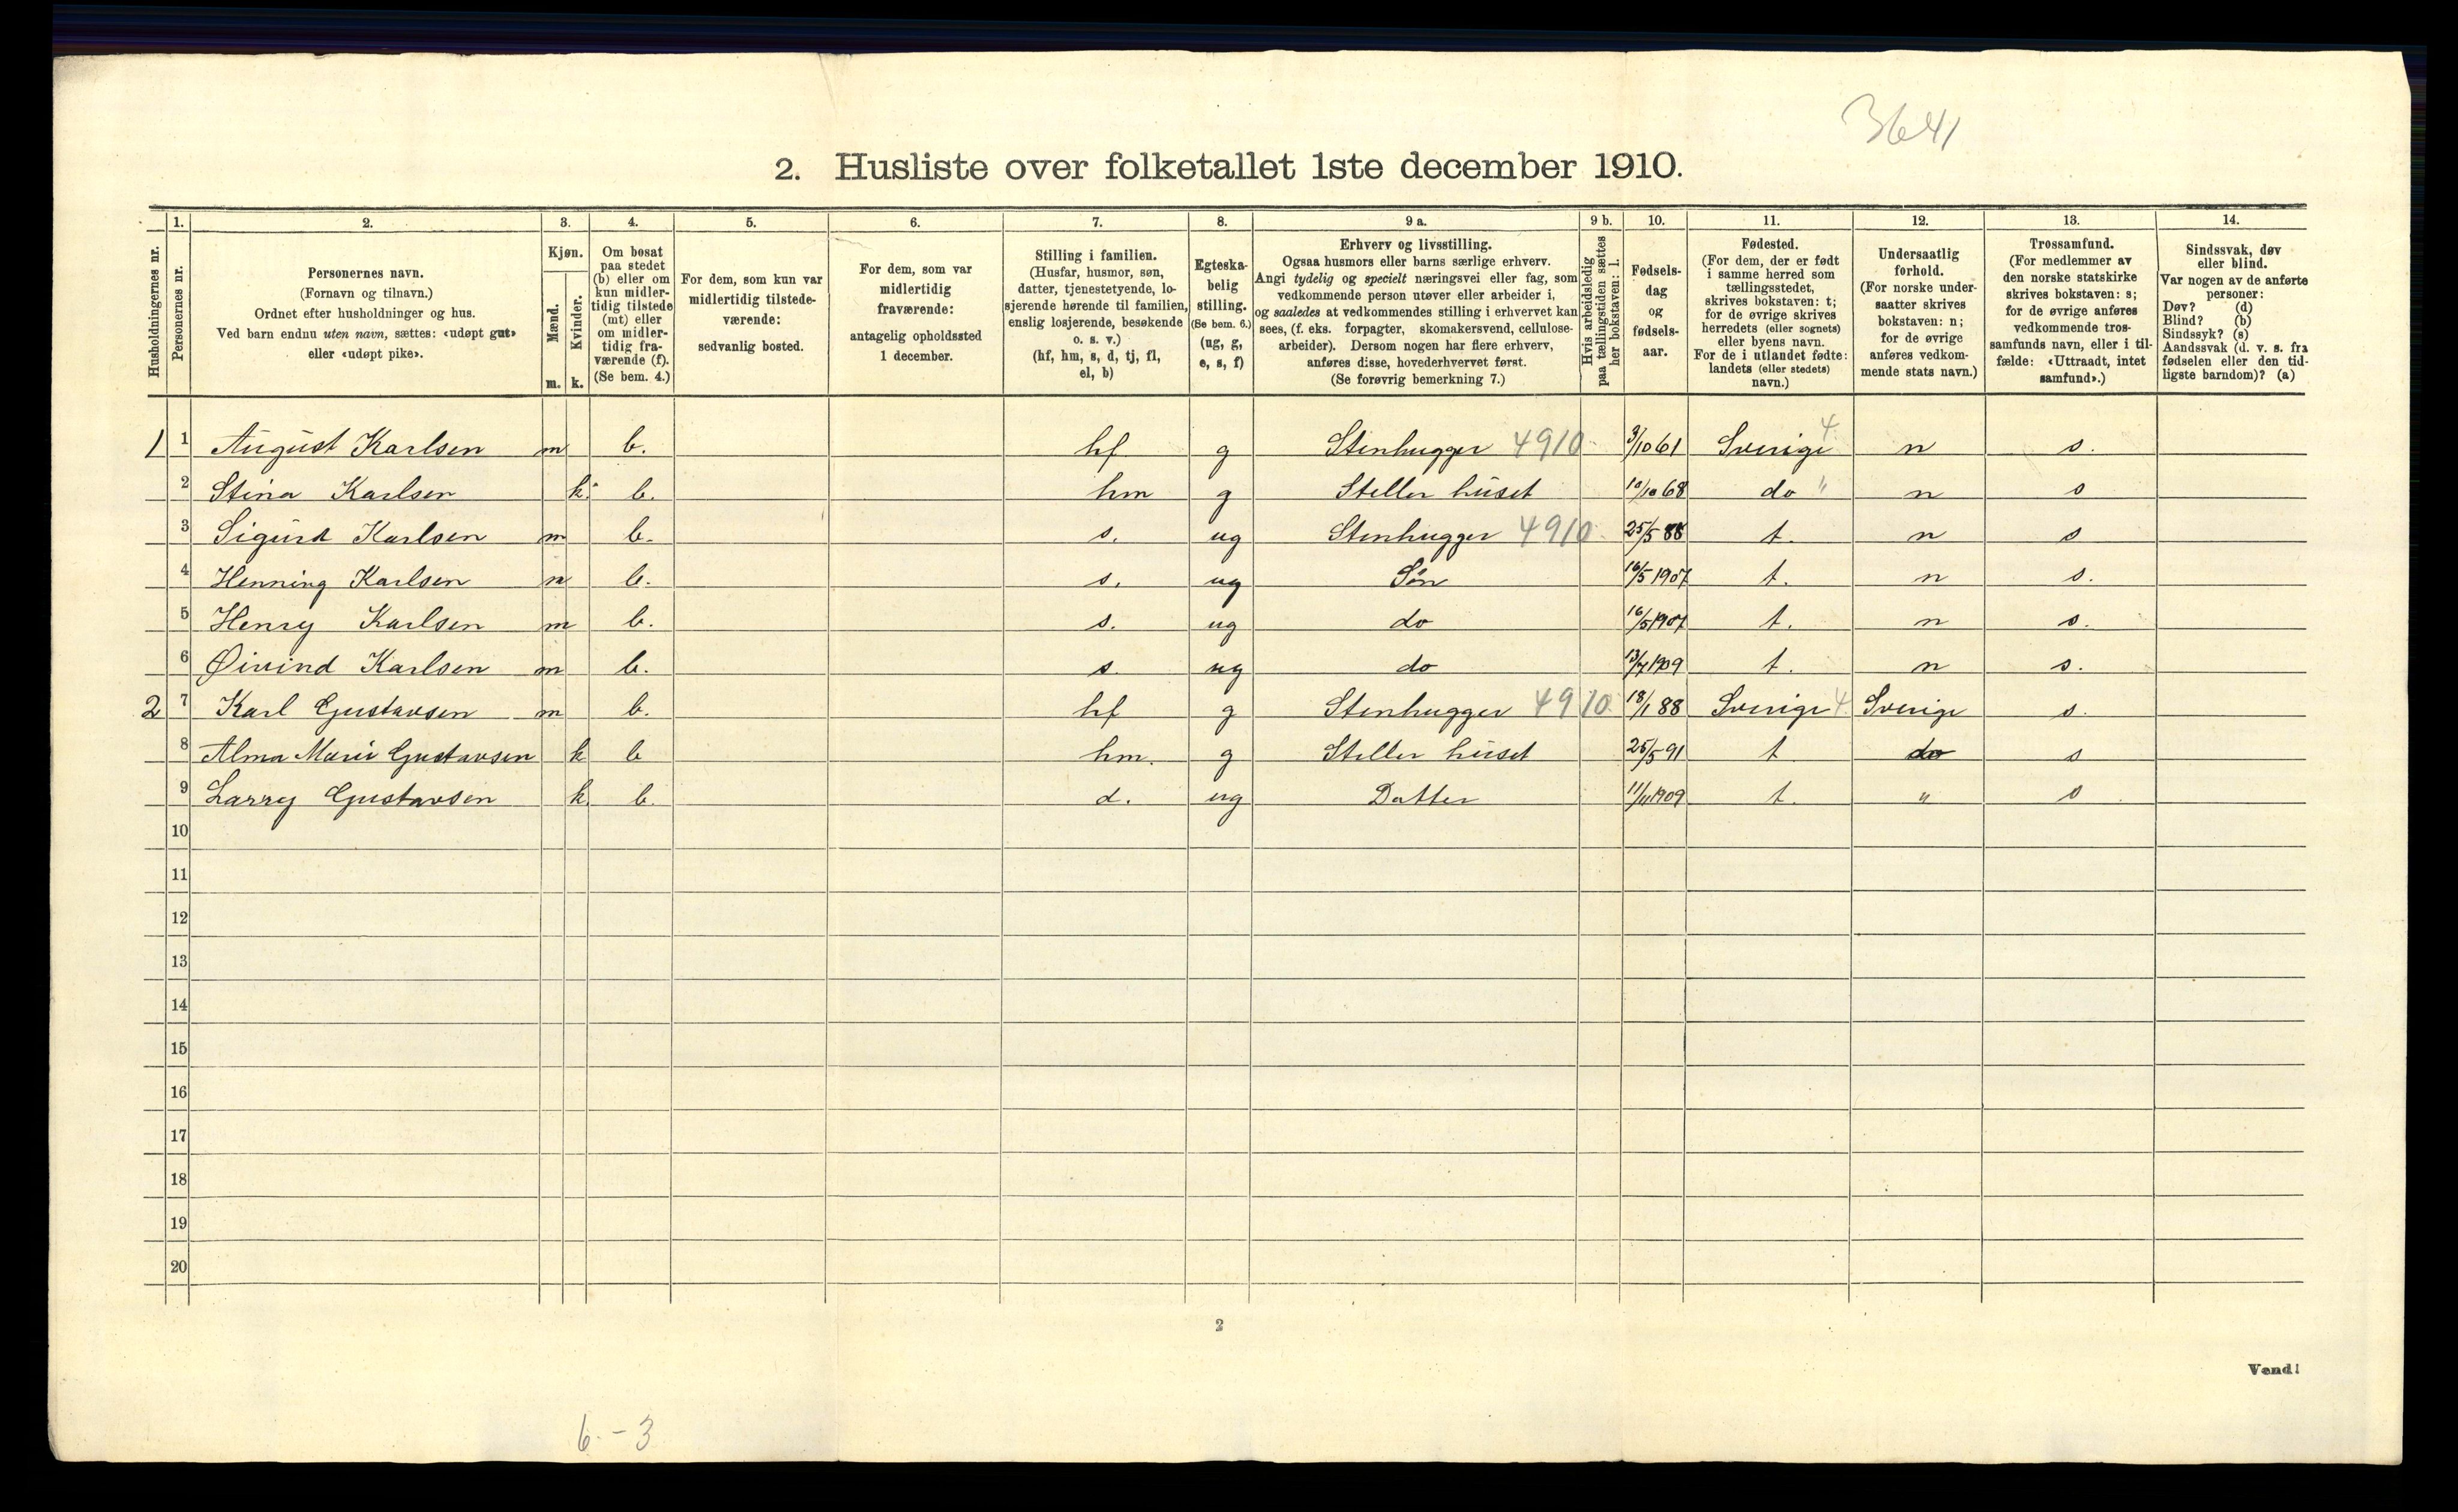 3641
2. Husliste over folketallet 1ste december 1910.
Husholdningernes nr.
1.
Personernes nr.
2.
Personernes navn.
(Fornavn og tilnavn.)
Ordnet efter husholdninger og hus.
Ved barn endnu uten navn, sættes: «udøpt gut»
eller «udøpt pike».
3.
Kjøn.
Mænd.
Kvinder.
m. k.
4.
Om bosat
paa stedet
(b) eller om
kun midler-
tidig tilstede
(mt) eller
om midler-
tidig fra-
værende (f).
(Se bem. 4.)
5.
For dem, som kun var
midlertidig tilstede-
værende:
sedvanlig bosted.
6.
For dem, som var
midlertidig
fraværende:
antagelig opholdssted
1 december.
7.
Stilling i familien.
(Husfar, husmor, søn,
datter, tjenestetyende, lo-
sjerende hørende til familien,
enslig losjerende, besøkende
o. s. v.)
(hf, hm, s, d, tj, fl,
el, b)
8.
Egteska-
belig
stilling.
(Se bem. 6.)
(ug, g,
e, s, f)
9 a.
Erhverv og livsstilling.
Ogsaa husmors eller barns særlige erhverv.
Angi tydelig og specielt næringsvei eller fag, som
vedkommende person utøver eller arbeider i,
og saaledes at vedkommendes stilling i erhvervet kan
sees, (f. eks. forpagter, skomakersvend, cellulose-
arbeider). Dersom nogen har flere erhverv,
anføres disse, hovederhvervet først.
(Se forøvrig bemerkning 7.)
9 b.
Hvis arbeidsledig
paa tællingstiden sættes
her bokstaven: l.
10.
Fødsels-
dag
og
fødsels-
aar.
11.
Fødested.
(For dem, der er født
i samme herred som
tællingsstedet,
skrives bokstaven: t;
for de øvrige skrives
herredets (eller sognets)
eller byens navn.
For de i utlandet fødte:
landets (eller stedets)
navn.)
12.
Undersaatlig
forhold.
(For norske under-
saatter skrives
bokstaven: n;
for de øvrige
anføres vedkom-
mende stats navn.)
13.
Trossamfund.
(For medlemmer av
den norske statskirke
skrives bokstaven: s;
for de øvrige anføres
vedkommende tros-
samfunds navn, eller i til-
fælde: «Uttraadt, intet
samfund».)
14.
Sindssvak, døv
eller blind.
Var nogen av de anførte
personer:
Døv? (d)
Blind? (b)
Sindssyk? (s)
Aandssvak (d. v. s. fra
fødselen eller den tid-
ligste barndom)? (a)
1 1 August Karlsen m b. hf g Stenhugger 4910 3/10 61 Sverige 4 n s.
2 Stina Karlsen k. b. hm g Steller huset 10/10 68 do " n s
3 Sigurd Karlsen m b. s. ug Stenhugger 4910 25/5 88 t. n s
4 Henning Karlsen m b. s. ug Søn 16/5 1907 t. n s.
5 Henry Karlsen m b. s. ug do 16/5 1907 t. n s.
6 Øivind Karlsen m b. s ug do 13/7 1909 t. n s.
2 7 Karl Gustavsen m b. hf g Stenhugger 4910 18/1 88 Sverige 4 Sverige s.
8 Alma Marie Gustavsen k b hm. g Steller huset 25/5 91 t do s
9 Larry Gustavsen k b. d. ug Datter 11/11 1909 t. " s
10
11
12
13
14
15
16
17
18
19
20
2
Vend!
6 - 3